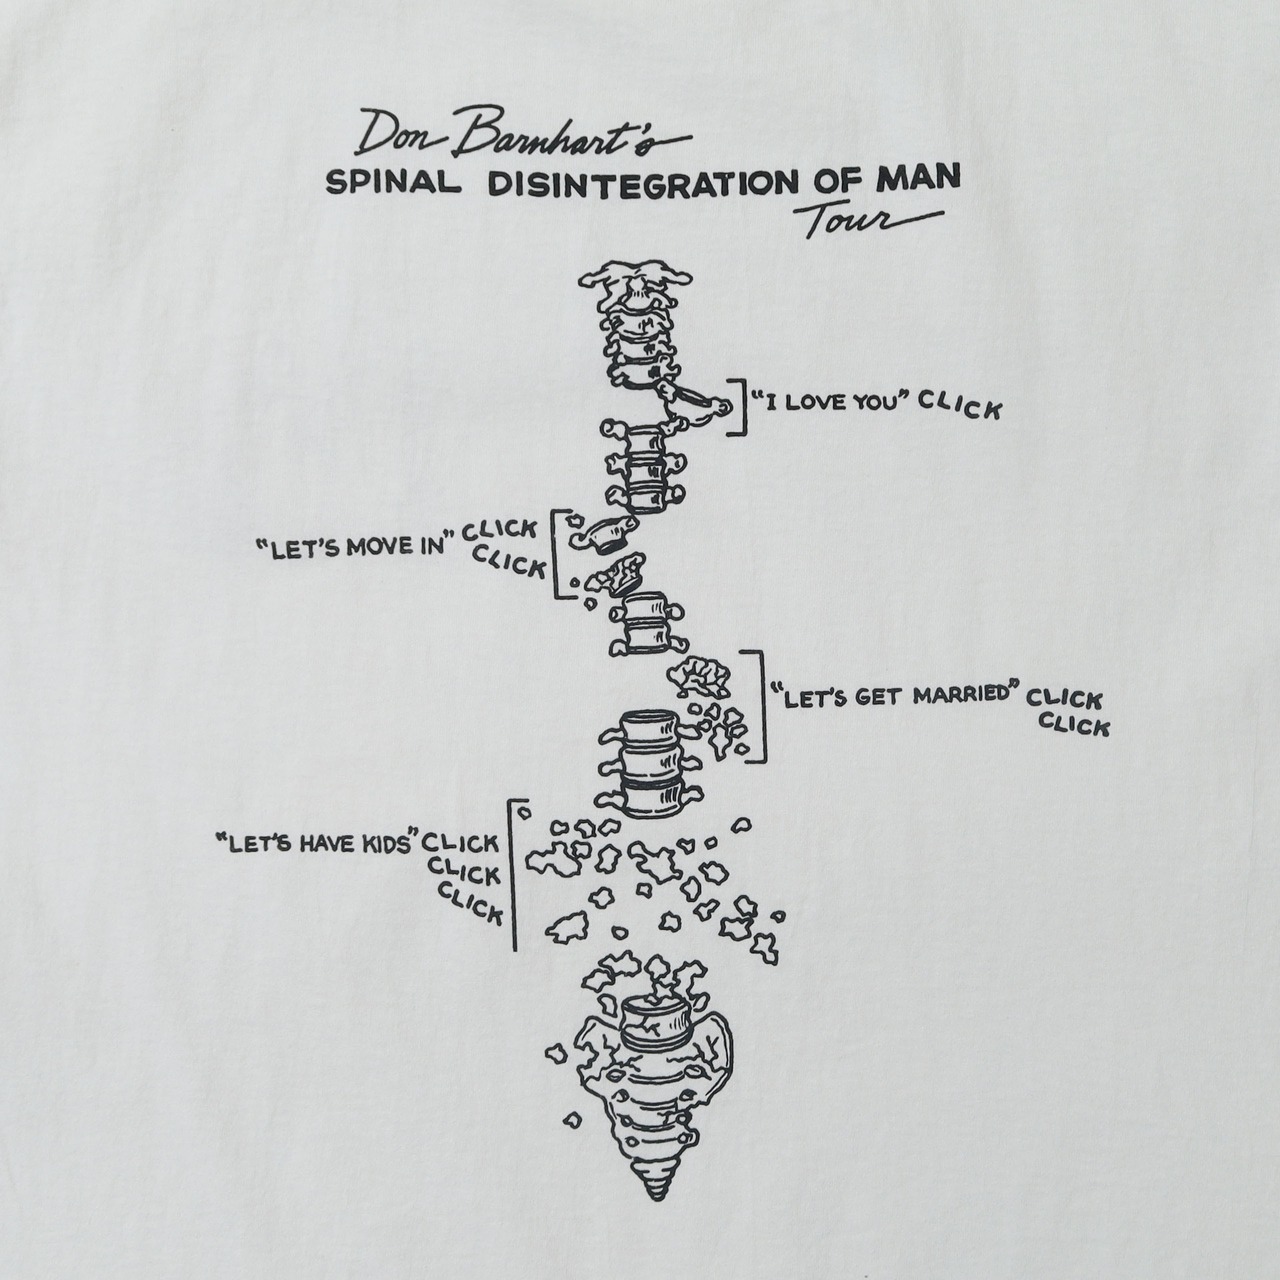 Don Barnhart's
SPINAL DISINTEGRATION OF MAN
Tour
"I LOVE YOU" CLICK
"LET'S MOVE IN" CLICK
CLICK
"LET'S GET MARRIED" CLICK
CLICK
"LET'S HAVE KIDS" CLICK
CLICK
CLICK